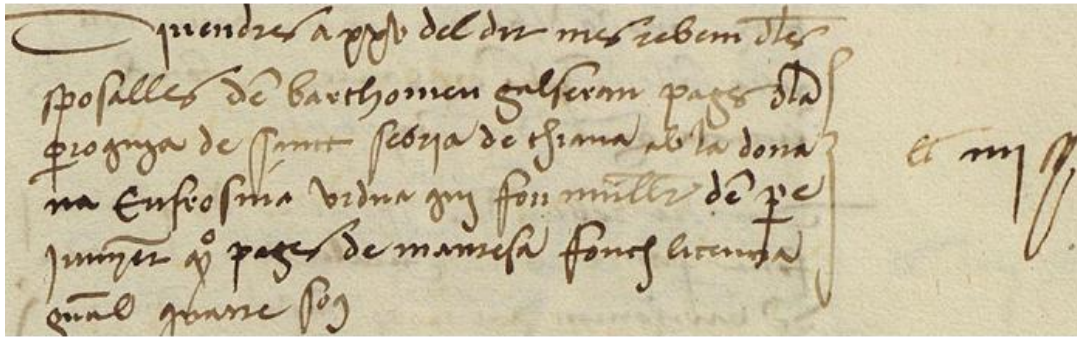 Divendres a xxv del dit mes rebem dles
sposalles den barthomeu galseran pages dla
proquya de sanct sebria de thiana ab la dona
na Eufrosina viduа qui fou muller den pe
juny er qo pages de manresa fonch licencia
gnãl quatre sos ll iiij ss